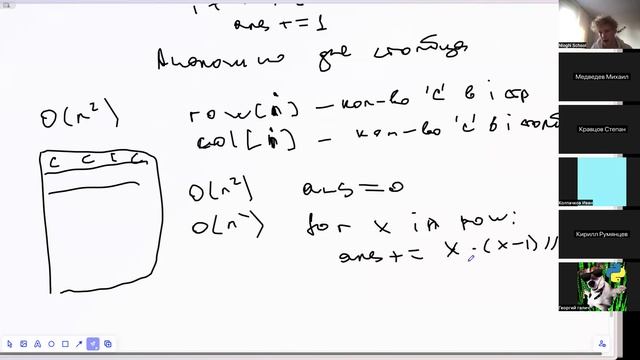 ans += 1
Аналогично для столбца
O(n²)
row[i] – кол-во 'C' в i стр
col[i] – кол-во 'C' в i столб
C C C C
O(n²) ans = 0
for x in row:
ans += x · (x-1) //
Nioghi School
Медведев Михаил
Кравцов Степан
Колпачков Иван
Кирилл Румянцев